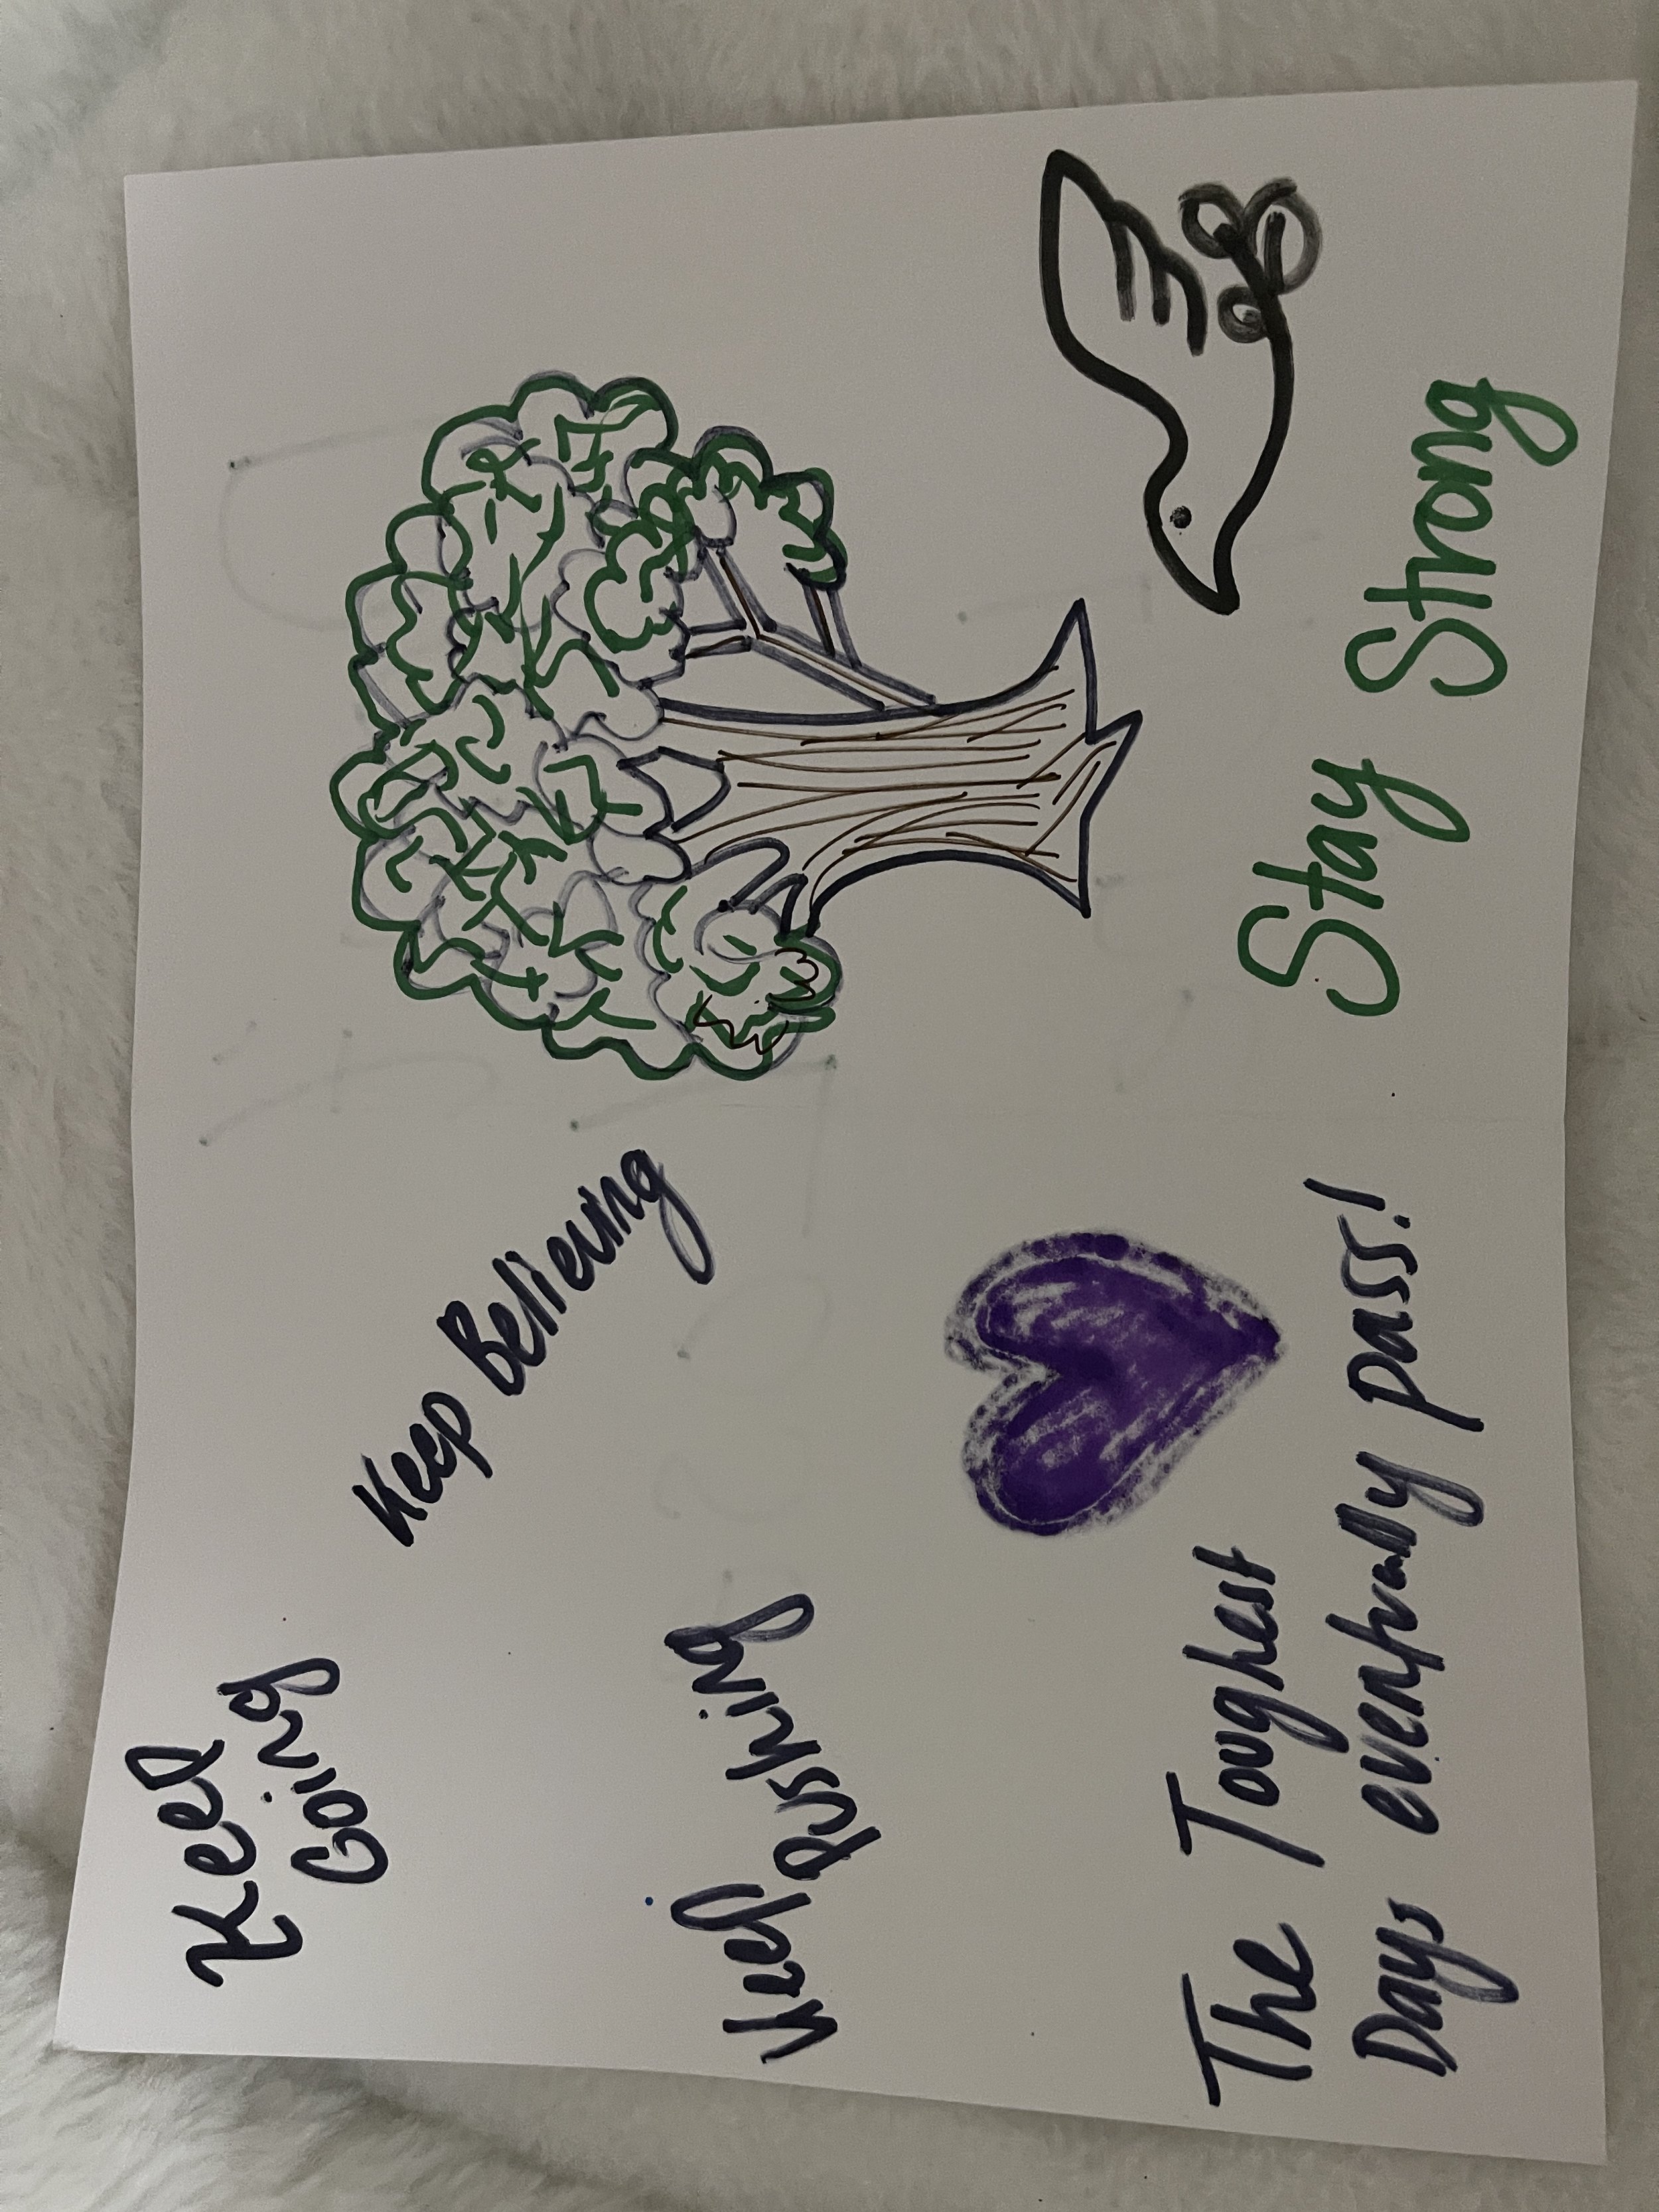 Keep
Going
Keep Believing
Keep Pushing
The Toughest
Days eventually pass!
Stay Strong